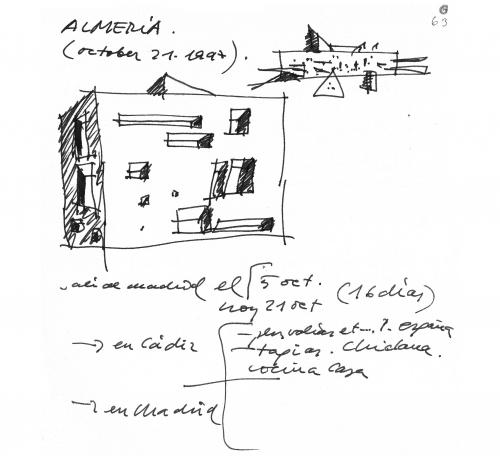 63
ALMERÍA.
(October 21. 1997).
salí de madrid el 5 oct.
hoy 21 oct (16 días)
→ en Cádiz
tapias. Chiclana.
cocina casa
→ en Madrid